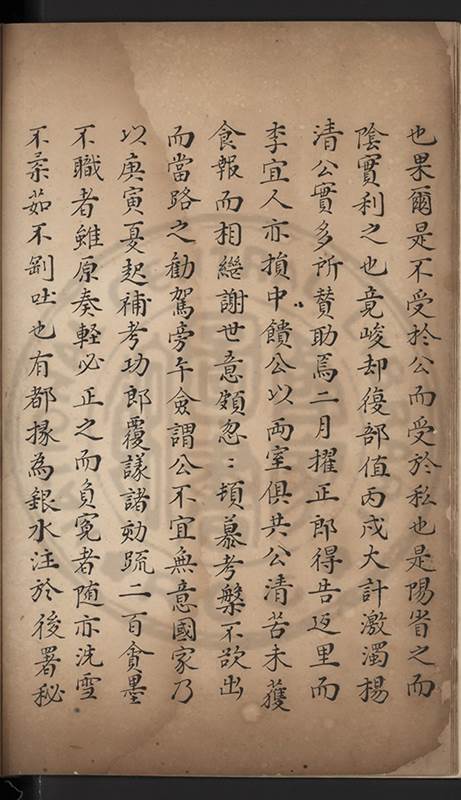 也果爾是不受於公而受於私也是陽眚之而
陰實利之也竟峻却復部值丙戌大計激濁楊
清公實多所賛助焉二月擢正郎得告返里而
李宜人亦損中饋公以兩室俱共公清苦未獲
食報而相繼謝世意頗忽〻頻慕考槃不欲出
而當路之勸駕旁午僉謂公不宜無意國家乃
以庚寅夏起補考功郎覆議諸劾疏二百貪墨
不職者雖原奏輕必正之而負寃者随亦洗雪
不茹茹不剛吐也有都掾為銀水注於後署秘